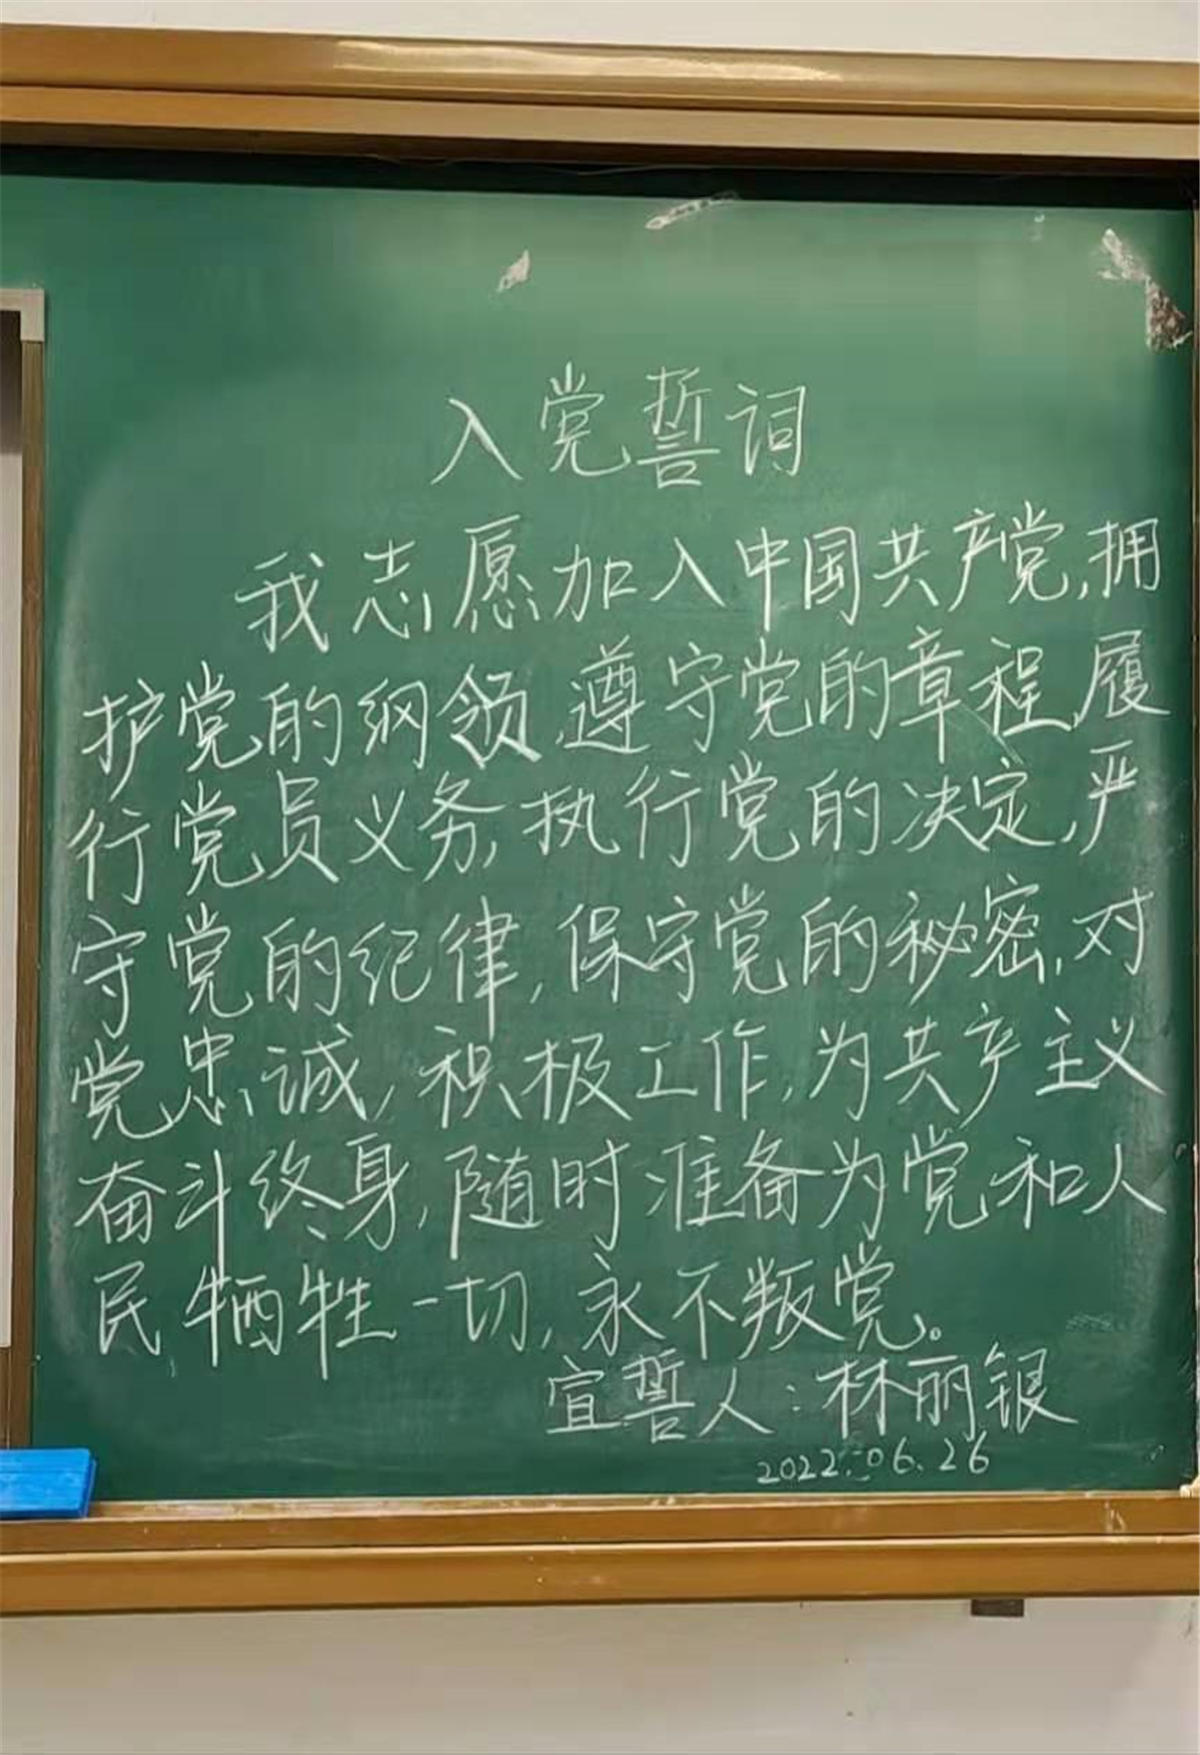 入党誓词
我志愿加入中国共产党,拥
护党的纲领,遵守党的章程,履
行党员义务,执行党的决定,严
守党的纪律,保守党的秘密,对
党忠诚,积极工作,为共产主义
奋斗终身,随时准备为党和人
民牺牲一切,永不叛党。
宣誓人:林丽银
2022.06.26